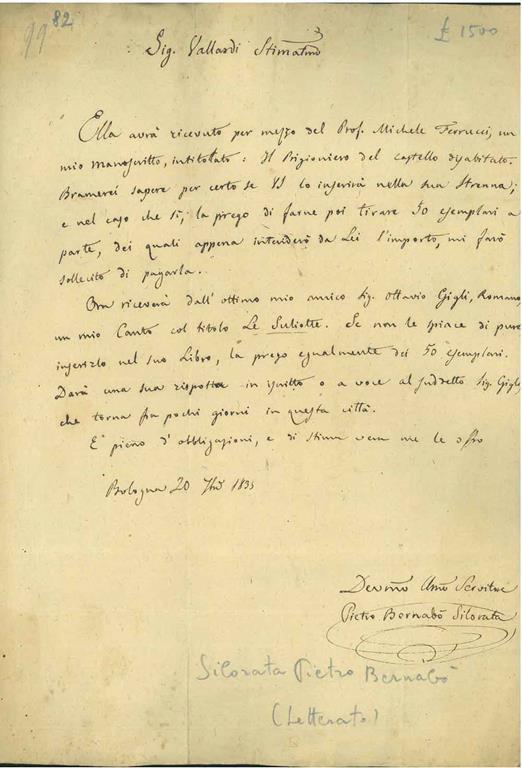 99 82
£ 1500
Sig. Vallardi Stimatmo
Ella avrà ricevuto per mezzo del Prof. Michele Ferrucci, un
mio manoscritto, intitolato: Il Prigioniero del castello disabitato.
Bramerei sapere per certo se VS lo inserirà nella sua Strenna;
e nel caso che sì, la prego di farne poi tirare 50 esemplari a
parte, dei quali appena intenderò da Lei l'importo, mi farò
sollecito di pagarla.
Ora riceverà dall'ottimo mio amico Sig. Ottavio Gigli, Romano,
un mio Canto col titolo Le Suliotte. Se non le spiace di pure
inserirlo nel suo Libro, la prego egualmente dei 50 esemplari.
Darà una sua risposta in iscritto o a voce al suddetto Sig. Gigli
che torna fra pochi giorni in questa città.
E pieno d'obbligazioni, e di stima vera me le offro
Bologna 20 7bre 1835
Devmo Amo Servitore
Pietro Bernabò Silorata
Silorata Pietro Bernabò
(Letterato)